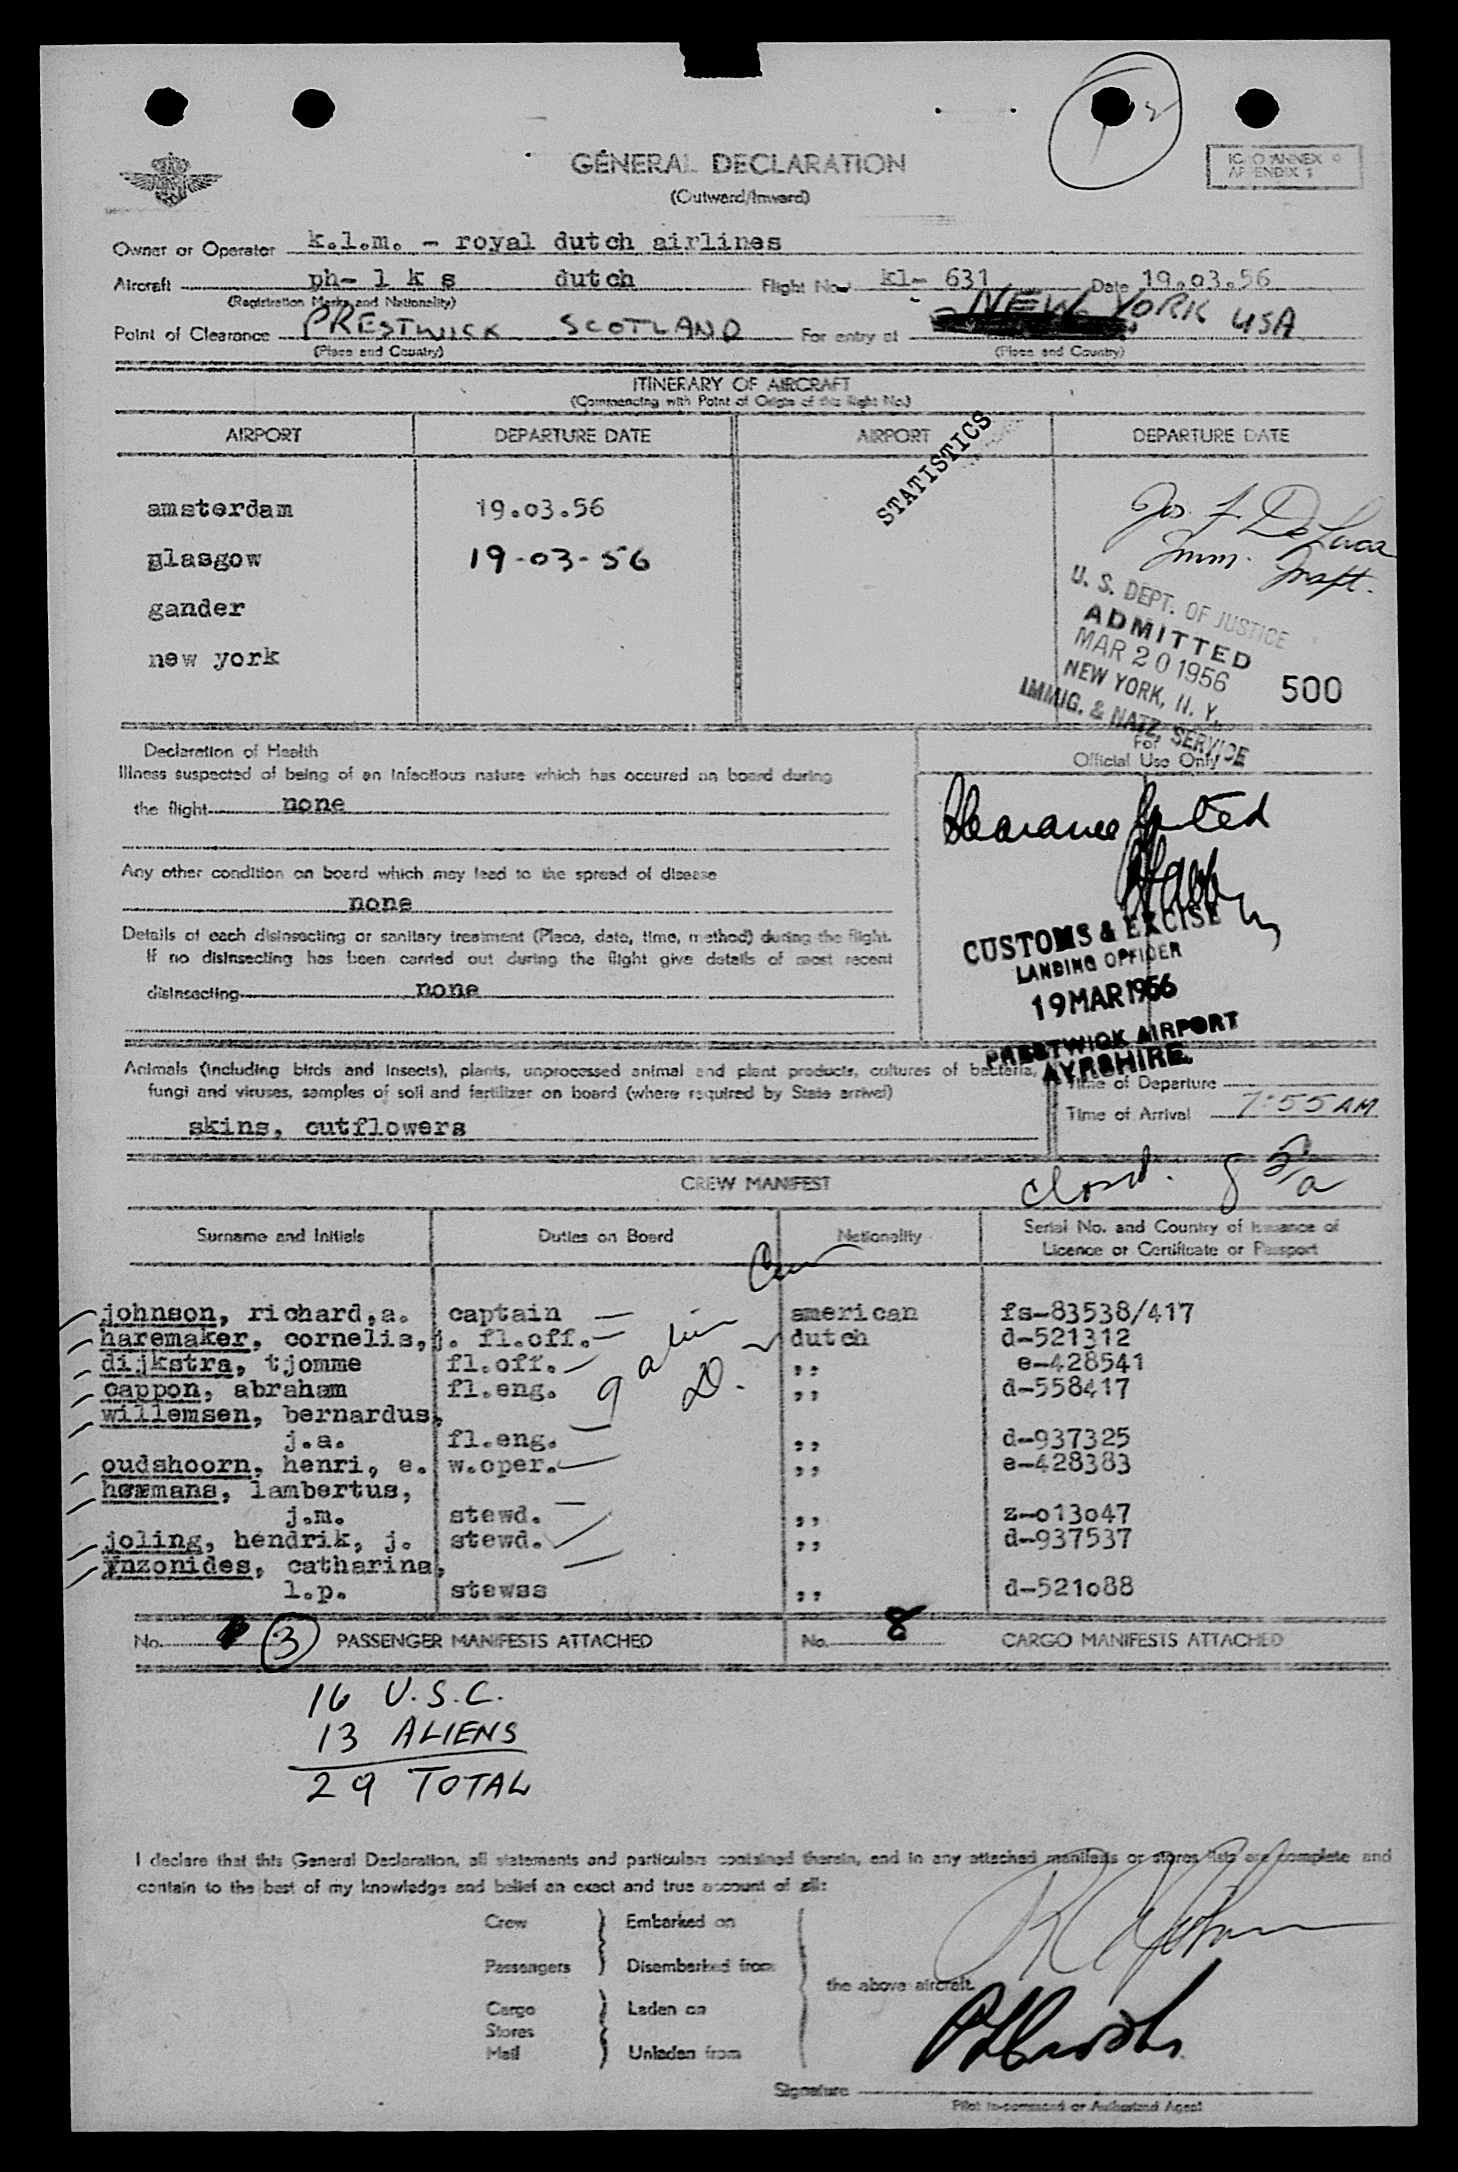 GENERAL DECLARATION
(Outward/Inward)
ICAO ANNEX 9
APPENDIX 1
Owner or Operator k.l.m. - royal dutch airlines
Aircraft ph- l k s dutch Flight No. kl- 631 Date 19.03.56
(Registration Marks and Nationality)
Point of Clearance PRESTWICK SCOTLAND For entry at NEW YORK USA
(Place and Country) (Place and Country)
ITINERARY OF AIRCRAFT
(Commencing with Point of Origin of this flight No.)
AIRPORT DEPARTURE DATE AIRPORT DEPARTURE DATE
STATISTICS
amsterdam 19.03.56
glasgow 19-03-56
gander
new york
Jos. F. DeLuca
Imm. Inspt.
U. S. DEPT. OF JUSTICE
ADMITTED
MAR 20 1956
NEW YORK, N. Y.
IMMIG. & NATZ. SERVICE
500
Declaration of Health
For
Official Use Only
Illness suspected of being of an infectious nature which has occured on board during
the flight none
Clearance Granted
Any other condition on board which may lead to the spread of disease
none
Details of each disinsecting or sanitary treatment (Place, date, time, method) during the flight.
If no disinsecting has been carried out during the flight give details of most recent
disinsecting none
CUSTOMS & EXCISE
LANDING OFFICER
19 MAR 1956
PRESTWICK AIRPORT
AYRSHIRE.
Animals (including birds and insects), plants, unprocessed animal and plant products, cultures of bacteria,
fungi and viruses, samples of soil and fertilizer on board (where required by State arrival)
skins, cutflowers
Time of Departure
Time of Arrival 7:55 AM
CREW MANIFEST
closed. 8
Surname and Initials Duties on Board Nationality Serial No. and Country of issuance of
Licence or Certificate or Passport
Crew
9 alien
johnson, richard,a. captain american fs-83538/417
haremaker, cornelis,j. fl.off. dutch d-521312
dijkstra, tjomme fl.off. ,, e-428541
cappon, abraham fl.eng. ,, d-558417
willemsen, bernardus,
j.a. fl.eng. ,, d-937325
oudshoorn, henri, e. w.oper. ,, e-428383
hermans, lambertus,
j.m. stewd. ,, z-o13o47
joling, hendrik, j. stewd. ,, d-937537
ynzonides, catharina,
l.p. stewss ,, d-521o88
No. 3 PASSENGER MANIFESTS ATTACHED No. 8 CARGO MANIFESTS ATTACHED
16 U.S.C.
13 ALIENS
29 TOTAL
I declare that this General Declaration, all statements and particulars contained therein, and in any attached manifests or stores lists are complete and
contain to the best of my knowledge and belief an exact and true account of all:
Crew Embarked on
Passengers Disembarked from
the above aircraft.
Cargo Laden on
Stores
Mail Unladen from
Signature
Pilot in-command or Authorized Agent